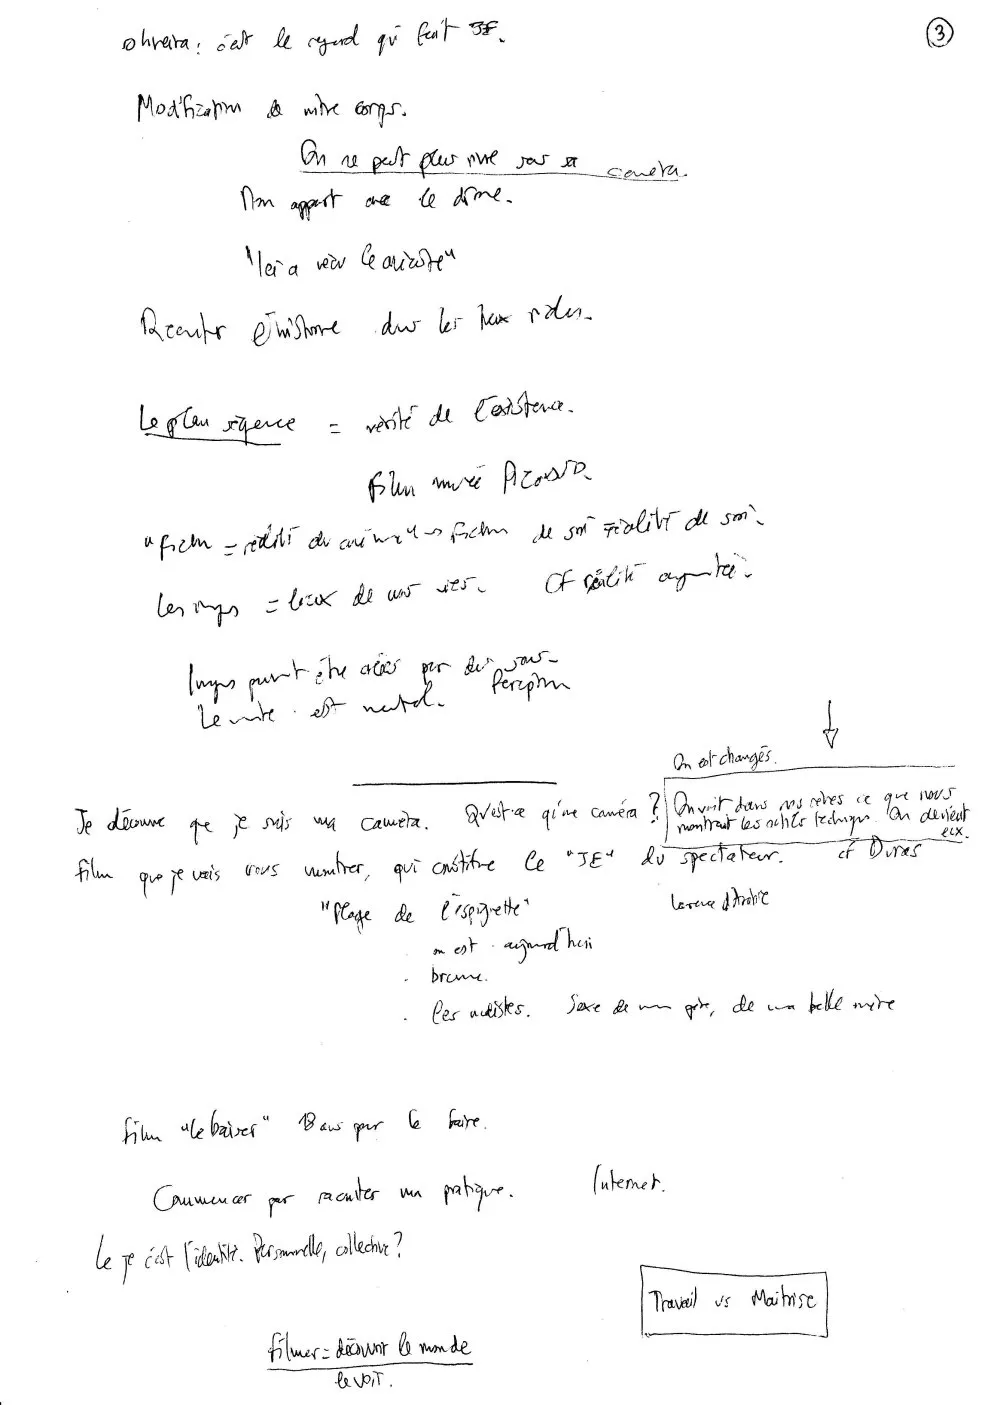 3
Oliveira : c'est le regard qui fait JE.
Modification de notre corps.
On ne peut plus vivre sans sa caméra.
Mon apport avec le drône.
Raconter l'histoire dans les lieux
Le plan séquence = vérité de l'existence.
Film musée Picasso.
"fiction = réalité du cinéma" → fiction de soi = réalité de soi.
Les = lieux de nos vies. Cf réalité augmentée.
Images peuvent être créées par des sous-
perception
Le est mental.
On est changés.
On voit dans nos rêves ce que nous
montrait les outils technique. On devient
eux.
Je découvre que je suis ma caméra. Qu'est-ce qu'une caméra ?
film que je vais vous montrer, qui constitue le "JE" du spectateur. cf Duras
"Plage de l'espiguette"
Lawrence d'Arabie
. on est aujourd'hui
. brume.
. les nudistes. Sexe de mon père, de ma belle mère
film "le baiser" 13 ans pour le faire.
Commencer par raconter ma pratique. Internet.
Le je c'est l'identité. Personnelle, collective ?
Travail vs Maitrise
filmer = découvrir le monde
le voit.